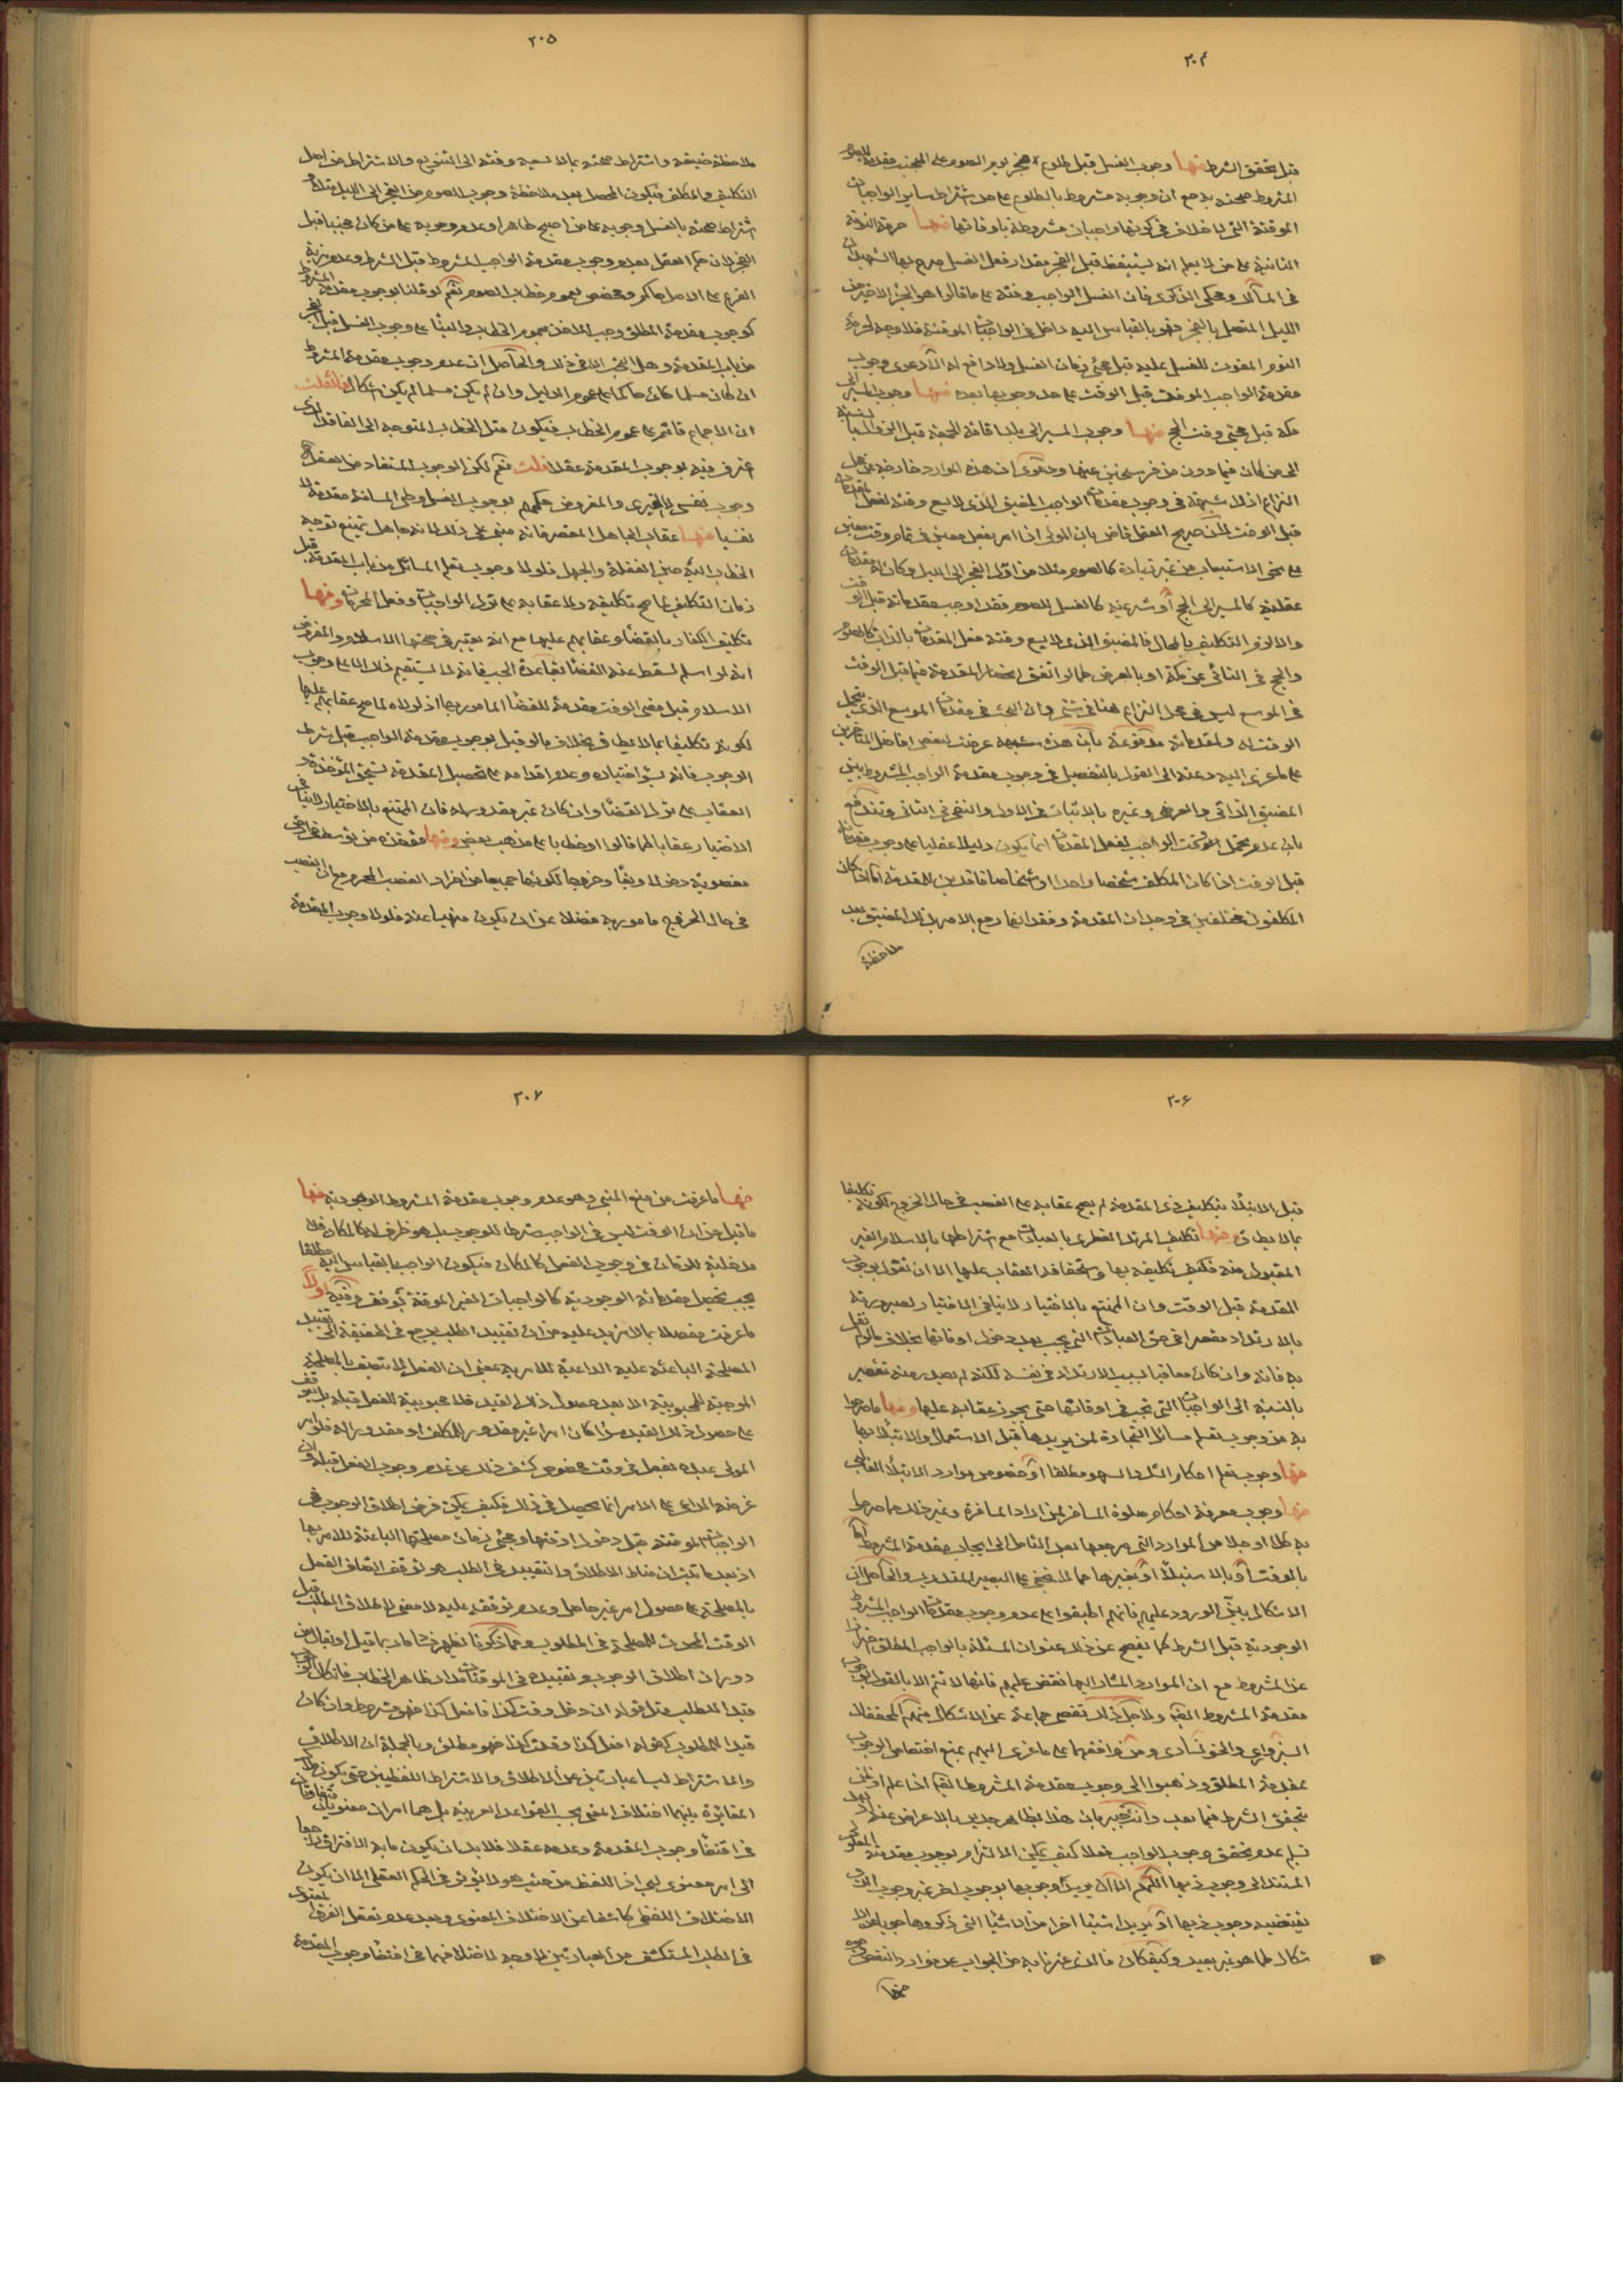 ٢٠٤
قبل تحقق الشرط منها وجوب الغسل قبل طلوع فجر يوم الصوم على المجنب مقدمة للصوم
المشروط صحته به مع ان وجوبه مشروط بالطلوع على حد اشتراط ساير الواجبات
الموقتة التى لا خلاف فى كونها واجبات مشروطة باوقاتها منها حرمة النومة
الثانية على من لا يعلم انه يستيقظ قبل الفجر مقدار فعل الغسل صرح بها الشهيدان
فى المسالك وحكى الذكرى فان الغسل الواجب وقته على ما قالوا هو الجزء الاخير من
الليل المتصل بالفجر فهو بالقياس اليه داخل فى الواجبات الموقتة فلا وجه لحرمة
النوم المفوت للغسل عليه قبل مجئ زمان الغسل ولا دافع له الا دعوى وجوب
مقدمة الواجب الموقت قبل الوقت على حد وجوبها بعده منها وجوب المسير الى
مكة قبل مجئ وقت الحج منها وجوب المسير الى بلد اقامة الجمعة قبل الزوال بالنسبة
الى من كان فيما دون من فرسخين عنها ودعوى ان هذه الموارد خارجة عن محل
النزاع اذ لا شبهة فى وجوب مقدمات الواجب المضيق الذى لا يسع وقته لفعل المقدمات
قبل الوقت لان صريح العقل قاض بان المولى اذا امر بفعل معين فى تمام وقت معين
على نحو الاستيعاب من غير زيادة كالصوم مثلا من اول الفجر الى الليل وكان له مقدمات
عقلية كالمسير الى الحج او شرعية كالغسل للصوم فقد اوجب مقدماته قبل الوقت
والا لزم التكليف بالمحال فالمضيق الذى لا يسع وقته فعل المقدمات بالذات كالصوم
والحج فى النائى عن مكة او بالعرض كما لو اتفق انحصار المقدمة فيما قبل الوقت
فى الموسع ليس فى محل النزاع هنا فى شئ وان البحث فى مقدمات الموسع الذى يتحمل
الوقت له ولمقدماته مدفوعة بان هذه شبهة عرضت لبعض افاضل المتاخرين
على ما عزى اليه دعته الى القول بالتفصيل فى وجوب مقدمة الواجب المشروط بين
المضيق الذاتى والعرضى وغيره بالاثبات فى الاول والنفى فى الثانى وتندفع
بان عدم تحمل الوقت الواجب لفعل المقدمات انما يكون دليلا عقليا على وجوب مقدماته
قبل الوقت اذا كان المكلف شخصا واحدا او اشخاصا فاقدين للمقدمة اما اذا كان
المكلفون مختلفين فى وجدان المقدمة وفقدانها رجع الامر بذلك المضيق بعد
ملاحظة
٢٠٥
ملاحظة ضيقه واشتراط صحته بما لا يسعه وقته الى التنويع والاشتراط من اصل
التكليف والمكلف فيكون المحصل بعد ملاحظة وجوب الصوم من الفجر الى الليل مثلا
اشتراط صحته بالغسل وجوبه على من اصبح طاهرا وعدم وجوبه على من كان مجنبا قبل
الفجر لان حكم العقل بعدم وجوب مقدمة الواجب المشروط قبل الشرط وعدم مزية
الفرع على الاصل حاكم ومخصص بعموم خطاب الصوم نعم لو قلنا بوجوب مقدمة المشروط
كوجوب مقدمة المطلق وجب الاخذ بعموم الخطاب والبناء على وجوب الغسل قبل الفجر
من باب المقدمة وهل البحث الا فى ذلك والحاصل ان عدم وجوب مقدمة المشروط
ان كان مسلما كان حاكما على عموم الدليل وان لم يكن مسلما لم يكن اشكال فان قلت
ان الاجماع قائم على عموم الخطاب فيكون مثل الخطاب المتوجه الى الفاقد الذى
اعترف فيه بوجوب المقدمة عقلا قلت نعم لكن الوجوب المستفاد من العقل
وجوب نفسى لا غيرى والمفروض حكمهم بوجوب الغسل وطى المسافة مقدمة لا
نفسيا منها عقاب الجاهل المقصر فانه مبنى على ذلك لانه جاهل يمتنع توجه
الخطاب اليه حين الغفلة والجهل فلولا وجوب تعلم المسائل من باب المقدمة قبل
زمان التكليف لما صح تكليفه ولا عقابه على ترك الواجبات وفعل المحرمات ومنها
تكليف الكفار بالقضاء وعقابهم عليها مع انه يعتبر فى صحتها الاسلام والمفروض
انه لو اسلم لسقط عنه القضاء بقاعدة الجب فانه لا يستقيم ذلك الا على وجوب
الاسلام قبل مضى الوقت مقدمة للقضاء المامور بها اذ لولاه لما صح عقابهم عليها
لكونه تكليفا بما لا يطاق بخلاف ما لو قيل بوجوب مقدمة الواجب قبل شرط
الوجوب فانه بسوء اختياره وعدم اقدامه على تحصيل المقدمة يستحق المؤاخذة و
العقاب على ترك القضاء وان كان غير مقدور له فان الممتنع بالاختيار لا ينافى
الاختيار عقابا كما قالوا او خطابا على مذهب بعض ومنها مؤاخذة من توسط ارض
مغصوبة دخولا وبقاء وخروجا لكونها جميعا من افراد الغصب المحرم مع ان الغصب
فى حال الخروج مامور به فضلا عن ان يكون منهيا عنه فلولا وجوب المقدمة
٢٠٦
قبل الابتلاء بتكليف ذى المقدمة لم يصح عقابه على الغصب فى حال الخروج لكونه تكليفا
بما لا يطاق منها تكليف المرتد الفطرى بالعبادات مع اشتراطها بالاسلام الغير
المقبول منه فكيف تكليفه بها واستحقاقه العقاب عليها الا ان نقول بوجوب
المقدمة قبل الوقت وان الممتنع بالاختيار لا ينافى الاختيار لصيرورته
بالارتداد مقصرا فى حق العبادات التى يجب بعد دخول اوقاتها بخلاف ما لم نقل
به فانه وان كان معاقبا بسبب الارتداد فى نفسه لكنه لم يصدر منه تقصير
بالنسبة الى الواجبات التى تجب فى اوقاتها حتى يجوز عقابه عليها ومنها ما صرحوا
به من وجوب تعلم مسائل التجارة لمن يريدها قبل الاستعمال والابتلاء بها
منها وجوب تعلم احكام الشك والسهو مطلقا او خصوص موارد الابتلاء الغالبى
منها وجوب معرفة احكام صلوة المسافر لمن اراد المسافرة وغير ذلك مما صرحوا
به كلا او جلا من الموارد التى مرجعها بعد التامل الى ايجاب مقدمة المشروط اما
بالوقت او بالاستيلاء او بغيرها مما لا يخفى على البصير المتدرب والحاصل ان
الاشكال بيّن الورود عليهم فانهم اطبقوا على عدم وجوب مقدمات الواجب المشروط
الوجودية قبل الشرط كما يفصح عن ذلك عنوان المسئلة بالواجب المطلق احترازا
عن المشروط مع ان الموارد المشار اليها نقض عليهم فانها لا تتم الا بالقول بوجوب
مقدمة المشروط ايضا ولاجل ذلك تفصى جماعة عن الاشكال منهم المحققان
السبزوارى والخونسارى ومن وافقهما على ما عزى اليهم بمنع اختصاص الوجوب
بمقدمة المطلق وذهبوا الى وجوب مقدمة المشروط ايضا اذا علم او ظن
بتحقق الشرط فيما بعد وانت خبير بان هذا بظاهره جدير بالاعراض عنه اذ بعد
تسليم عدم تحقق وجوب الواجب فعلا كيف يمكن الالتزام بوجوب مقدمته المعلول
المستند الى وجوب ذيها اللهم الا ان يريدوا وجوبها بوجوب اخر غير وجوب الذى
يقتضيه وجوب ذيها او يريدوا شيئا اخر من الاشياء التى ذكروها جوابا عن الا
شكال كما هو غير بعيد وكيف كان فالذى عثرنا به من الجواب عن موارد النقض وجوه
منها
٢٠٧
منها ما عرفت من منع المبنى وهو عدم وجوب مقدمة المشروط الوجودية منها
ما قيل من ان الوقت ليس فى الواجب شرطا للوجوب بل هو ظرف له كالمكان فلا
مدخلية للزمان فى وجوب الفعل كالمكان فيكون الواجب بالقياس اليه مطلقا
يجب تحصيل مقدماته الوجودية كالواجبات الغير الموقتة بوقت وفيه اولا
ما عرفت مفصلا بما لا مزيد عليه من ان تقييد الطلب يرجع فى الحقيقة الى تقييد
المصلحة الباعثة عليه الداعية للامر به بمعنى ان الفعل لا يتصف بالمصلحة
الموجبة للمحبوبية الا بعد حصول ذلك القيد فلا محبوبية للفعل قبله بل يتوقف
على حصول ذلك القيد سواء كان امرا غير مقدور للمكلف او مقدورا له فلو امر
المولى عبده بفعل فى وقت مخصوص كشف ذلك عن عدم وجوب الفعل قبله وان
غرضه الداعى على الامر انما يحصل فى ذلك فكيف يمكن فرض اطلاق الوجوب فى
الواجبات الموقتة قبل دخول اوقتها ومجئ زمان مصلحتها الباعثة للامر بها
اذ بعد ما ثبت ان مناط الاطلاق والتقييد فى الطلب هو توقف اتصاف الفعل
بالمصلحة على حصول امر غير حاصل وعدم توقفه عليه لا معنى لاطلاق الطلب قبل
الوقت المحدث للمصلحة فى المطلوب ومما ذكرنا يظهر فساد ما ربما قيل او يقال من
دوران اطلاق الوجوب وتقييده فى الموقتات مدار ظاهر الخطاب فان كان الوقت
قيدا للطلب مثل قوله ان دخل وقت كذا فافعل كذا فهو مشروط وان كان
قيدا للمطلوب كقوله افعل كذا وقت كذا فهو مطلق وبالجملة ان الاطلاق
والاشتراط ليسا عبارتين عن الاطلاق والاشتراط اللفظيين حتى يكون ملاك
المغايرة بينهما اختلاف المعنى بحسب القواعد العربية بل هما امران معنويان متفاوتان
فى اقتضاء وجوب المقدمة وعدمه عقلا فلا بد ان يكون ما به الافتراق راجعا
الى امر معنوى لبى اذ اللفظ من حيث هو لا يؤثر فى الحكم العقلى الا ان يكون
الاختلاف اللفظى كاشفا عن الاختلاف المعنوى وبعد عدم تعقل الفرق المعنوى
فى الطلب المستكشف من العبارتين لا وجه لاختلافهما فى اقتضاء وجوب المقدمة